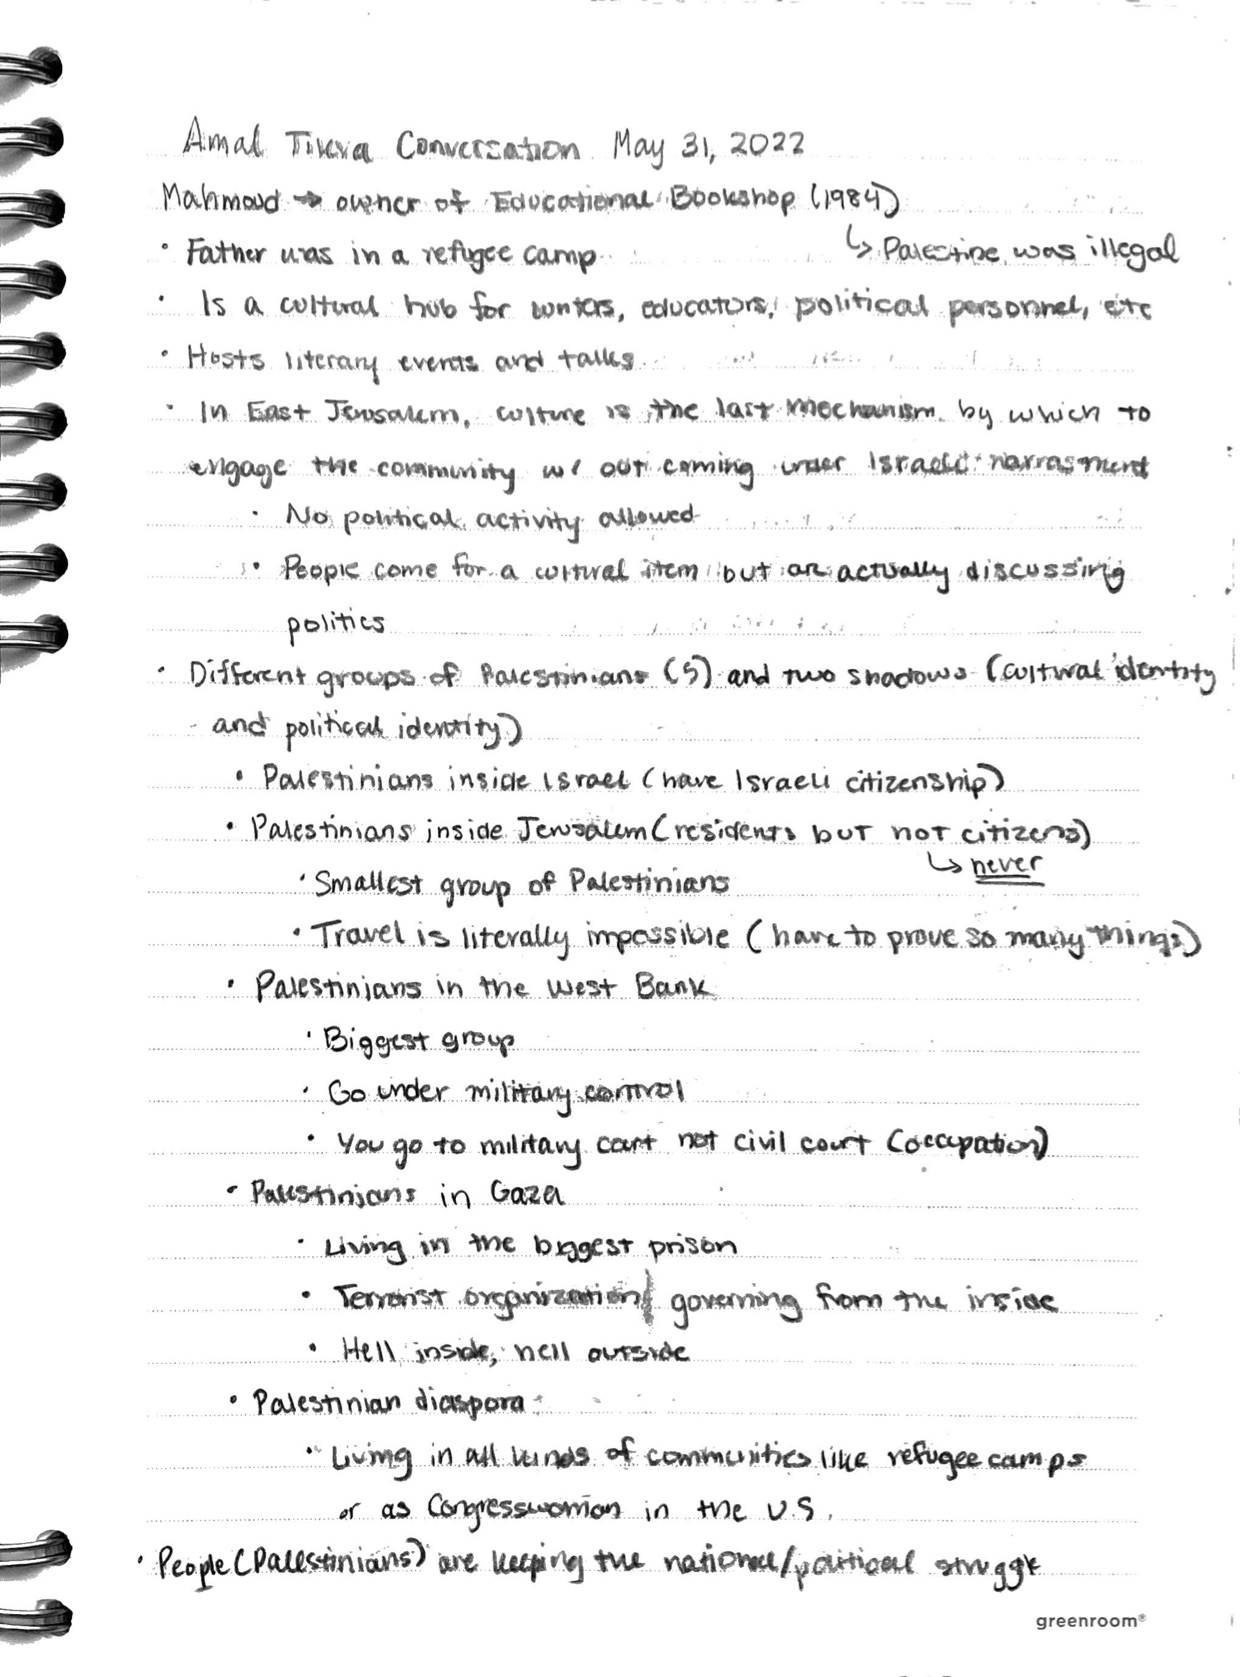 Amal Tikva Conversation May 31, 2022
Mahmoud → owner of Educational Bookshop (1984)
• Father was in a refugee camp ↳ Palestine was illegal
• Is a cultural hub for writers, educators, political personnel, etc
• Hosts literary events and talks
• In East Jerusalem, culture is the last mechanism by which to
engage the community w/ out coming under Israeli harrasment
• No political activity allowed
• People come for a cultural item but are actually discussing
politics
• Different groups of Palestinians (5) and two shadows (cultural identity
and political identity)
• Palestinians inside Israel (have Israeli citizenship)
• Palestinians inside Jerusalem (residents but not citizens)
↳ never
• Smallest group of Palestinians
• Travel is literally impossible (have to prove so many things)
• Palestinians in the West Bank
• Biggest group
• Go under military control
• You go to military court not civil court (occupation)
• Palestinians in Gaza
• Living in the biggest prison
• Terrorist organization governing from the inside
• Hell inside, hell outside
• Palestinian diaspora
• Living in all kinds of communities like refugee camps
or as Congresswoman in the U.S.
• People (Palestinians) are keeping the national/political struggle
greenroom®